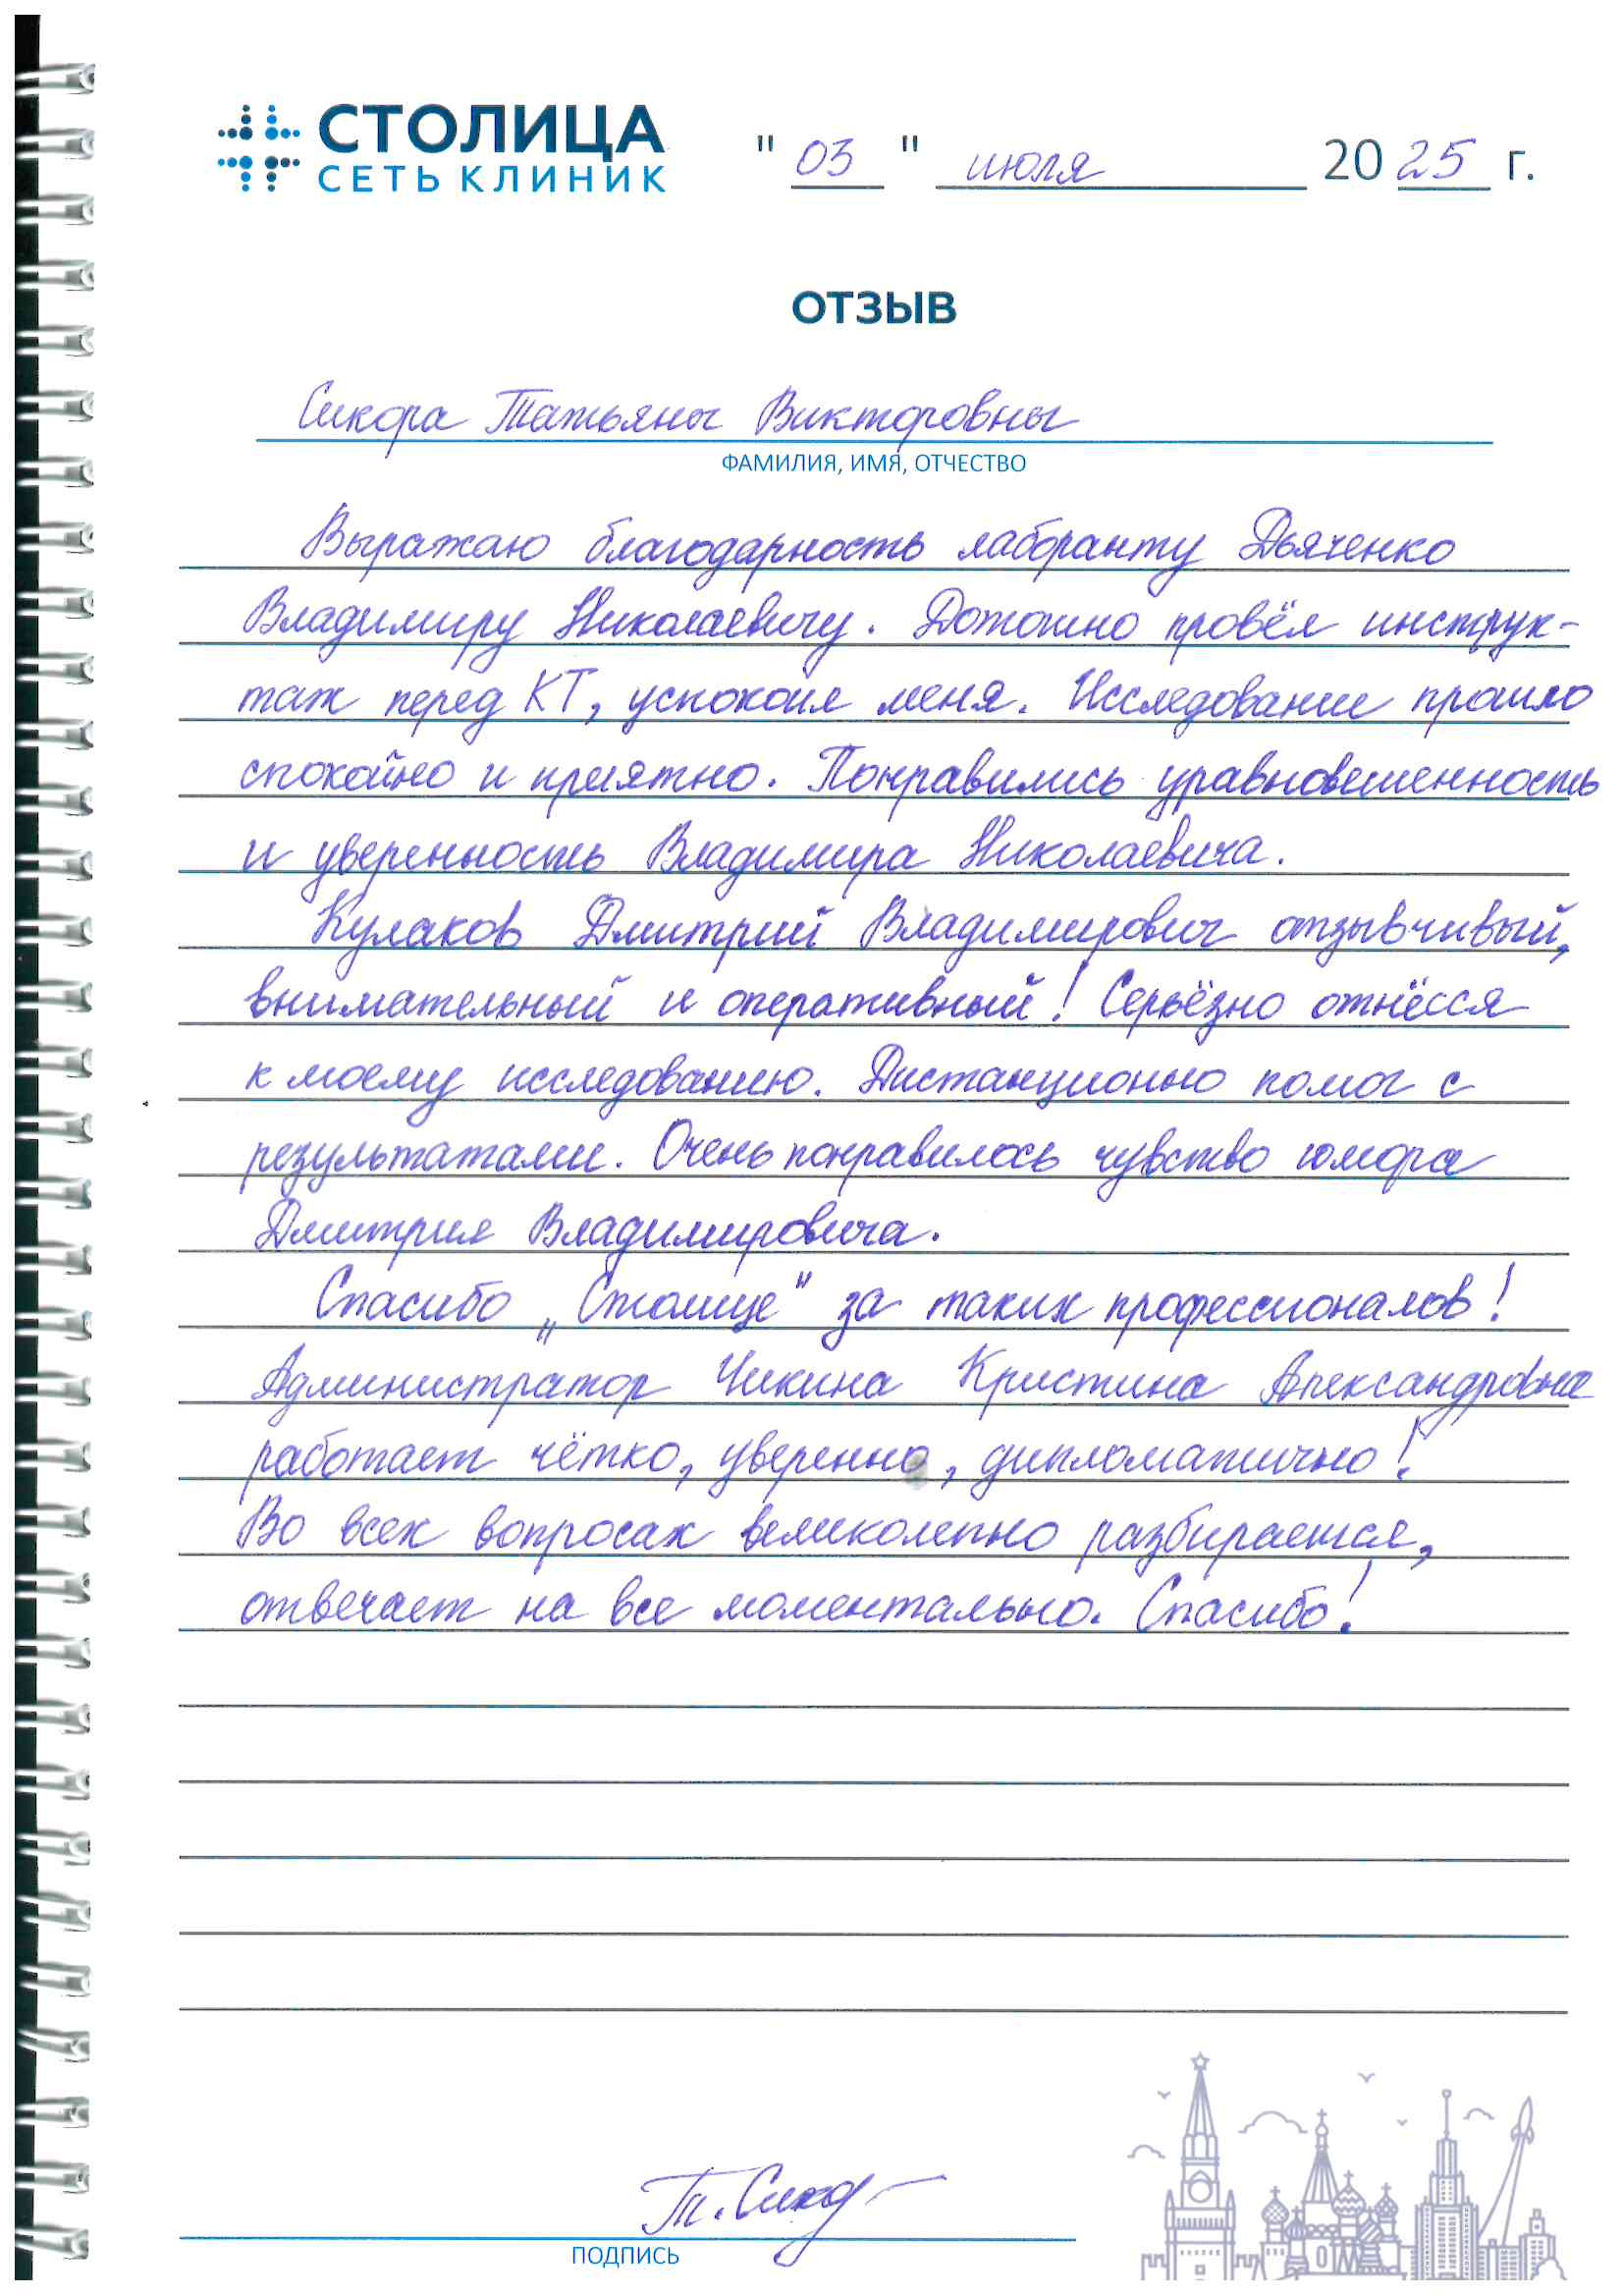 СТОЛИЦА
СЕТЬ КЛИНИК
" 03 " июля 2025 г.
ОТЗЫВ
Сикора Татьяны Викторовны
ФАМИЛИЯ, ИМЯ, ОТЧЕСТВО
Выражаю благодарность лаборанту Дьяченко
Владимиру Николаевичу. Дотошно провёл инструк-
таж перед КТ, успокоил меня. Исследование прошло
спокойно и приятно. Понравились уравновешенность
и уверенность Владимира Николаевича.
Кулаков Дмитрий Владимирович отзывчивый,
внимательный и оперативный! Серьёзно отнёсся
к моему исследованию. Дистанционно помог с
результатами. Очень понравилось чувство юмора
Дмитрия Владимировича.
Спасибо „Столице" за таких профессионалов!
Администратор Чикина Кристина Александровна
работает чётко, уверенно, дипломатично!
Во всех вопросах великолепно разбирается,
отвечает на все моментально. Спасибо!
Т. Сикор
ПОДПИСЬ